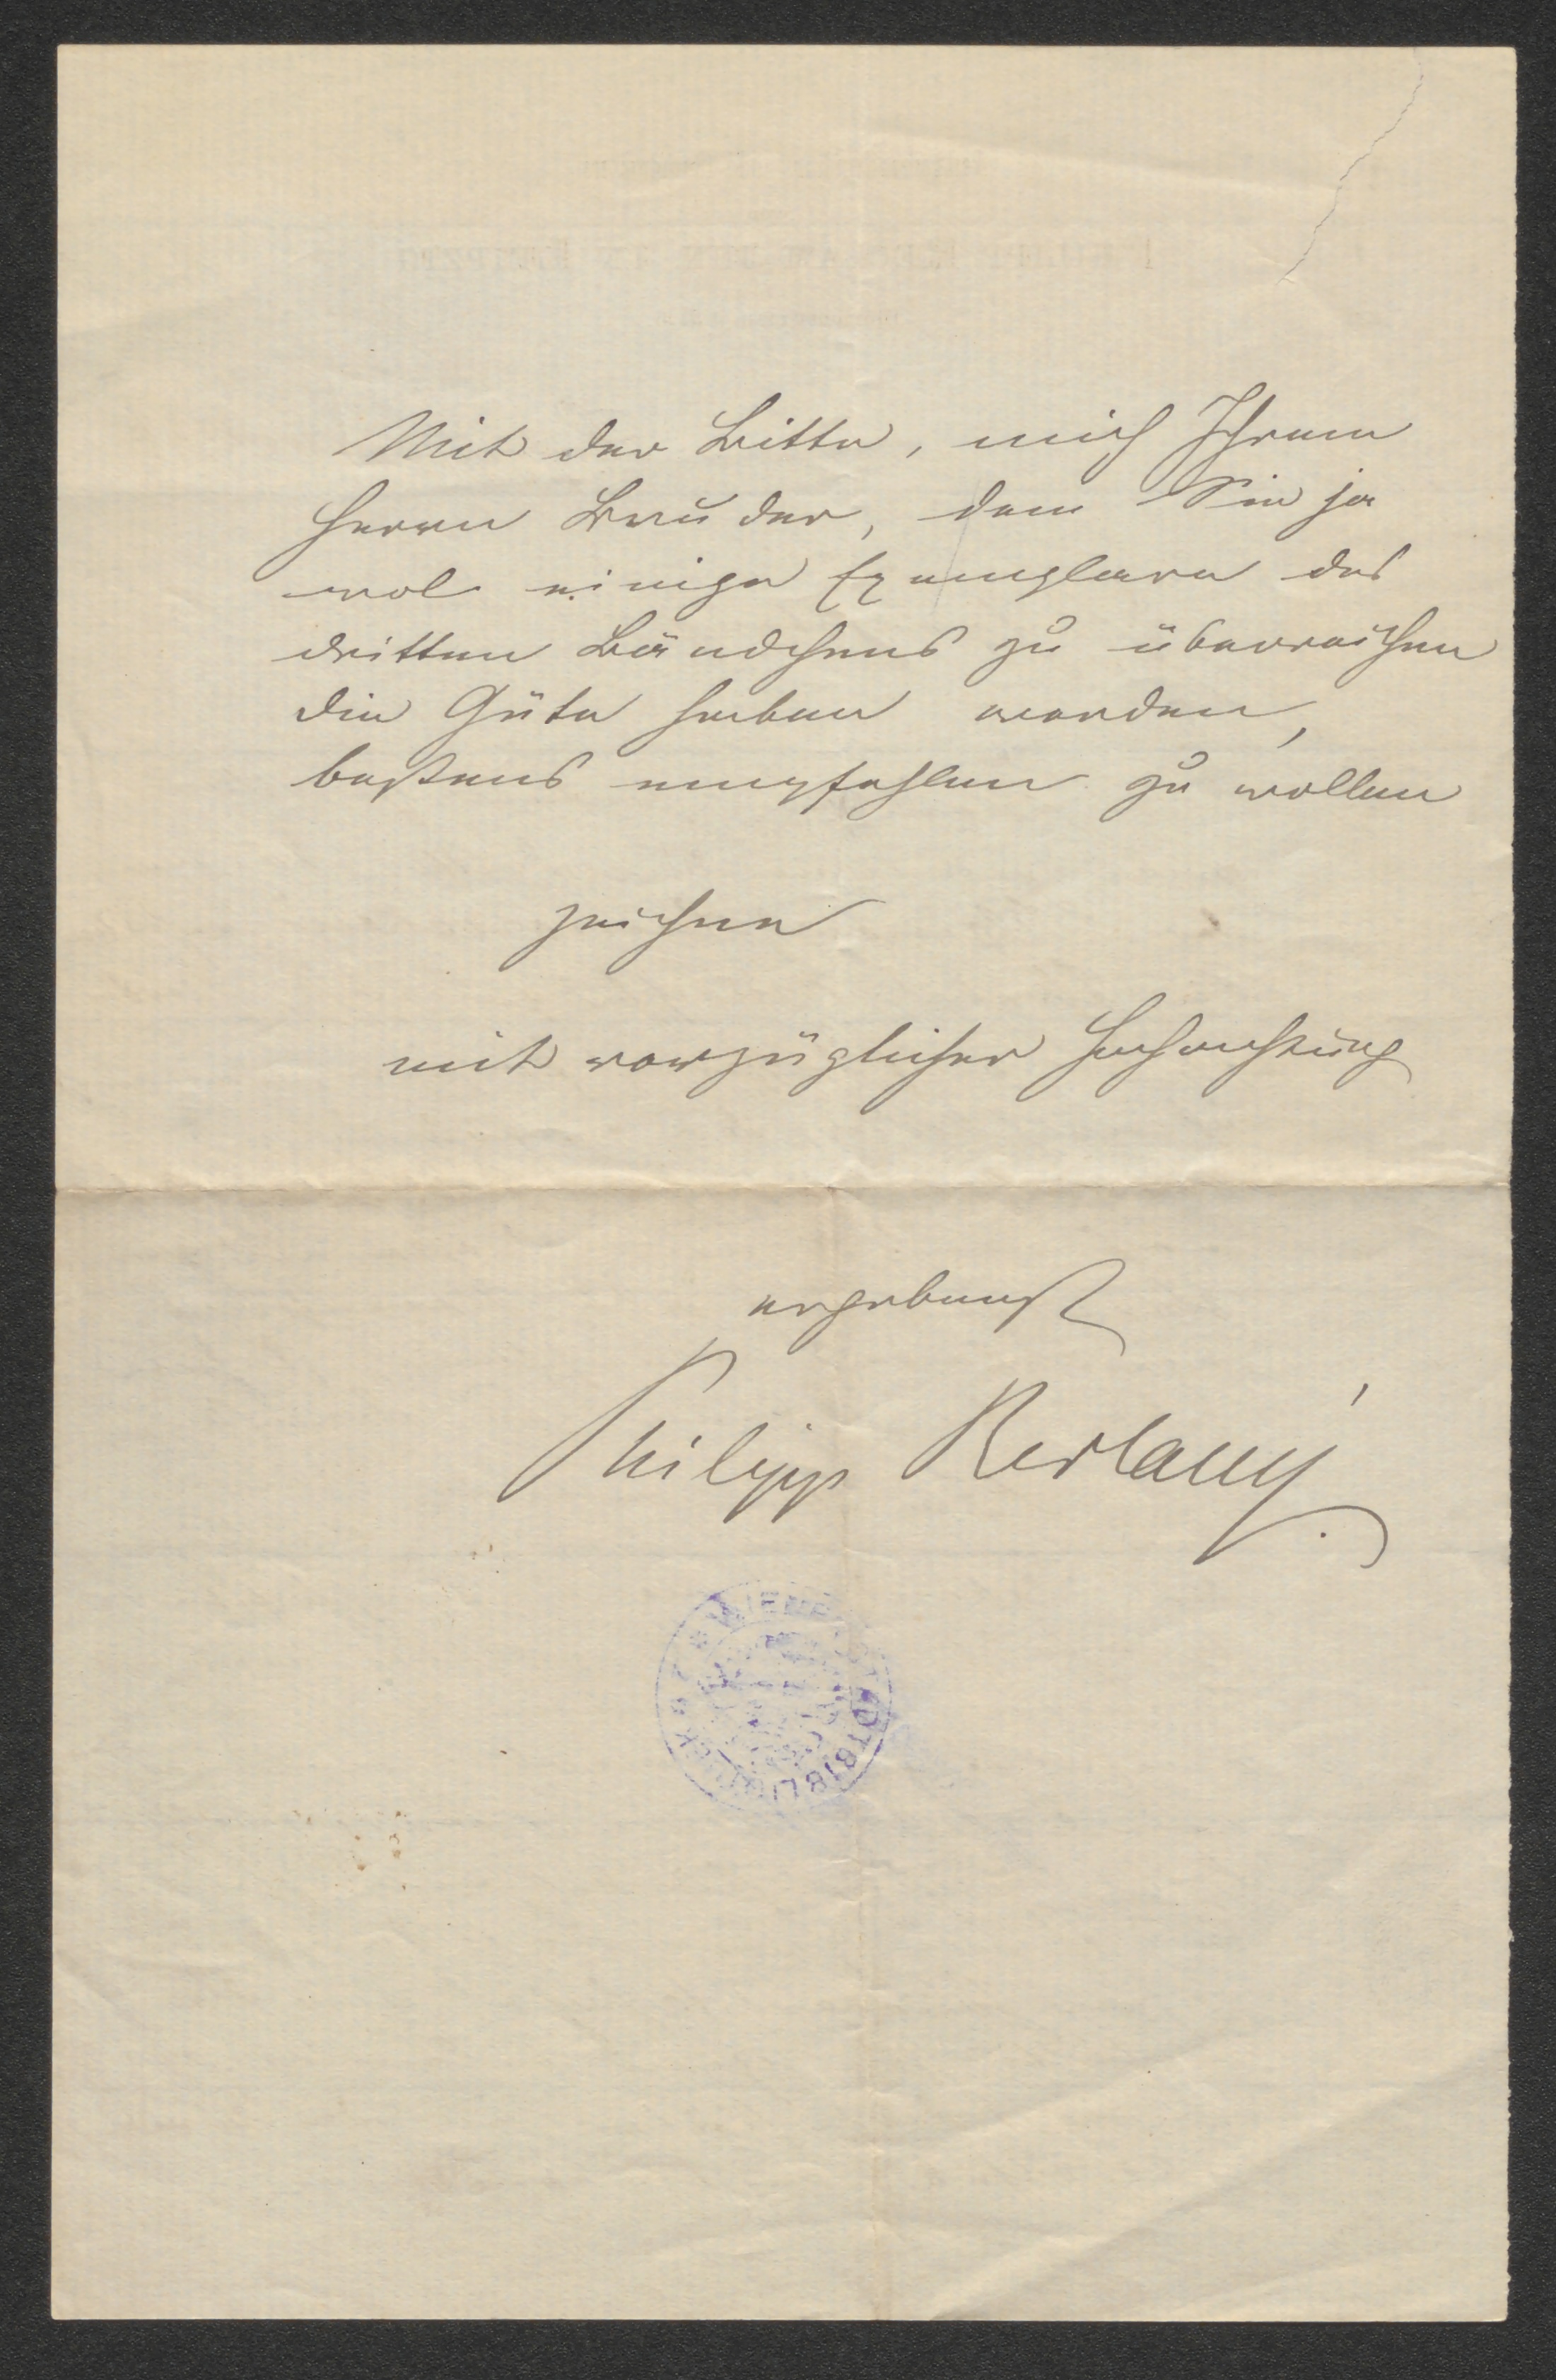 Mit der Bitte, mich Ihrem
Herrn Bruder, dem Sie ja
wol einige Exemplare des
dritten Bändchens zu überreichen
die Güte haben werden,
bestens empfehlen zu wollen
zeichne
mit vorzüglicher Hochachtung
ergebenst
Philipp
WIENER